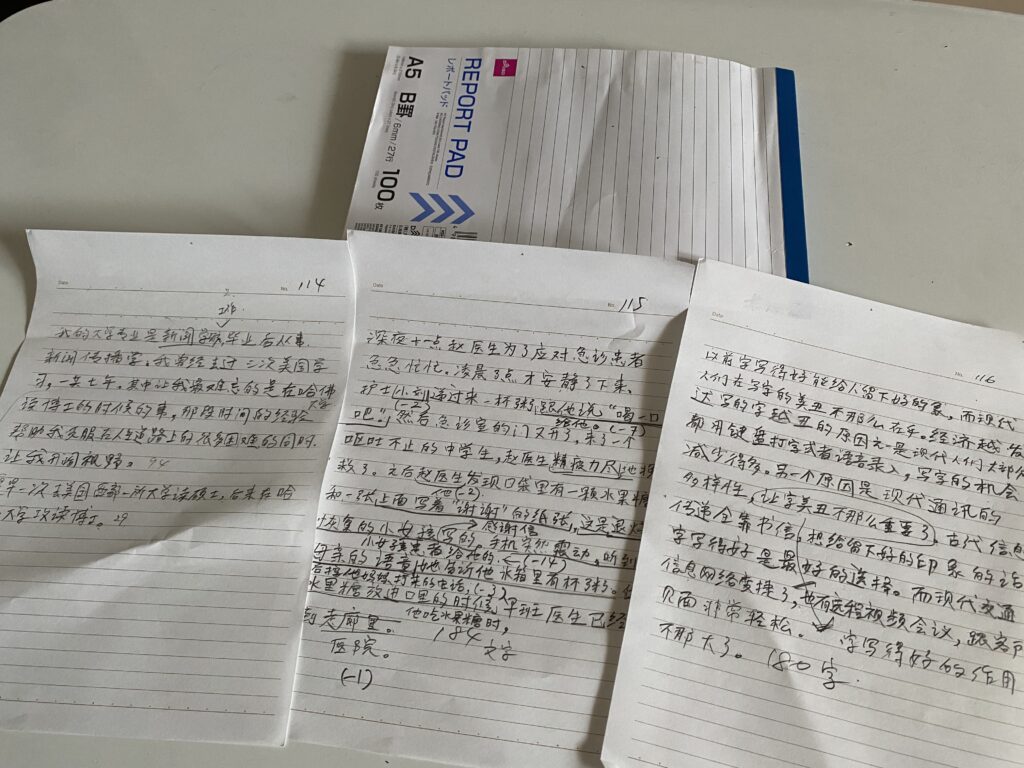 REPORT PAD
レポートパッド
A5 B罫 / 6mm / 27行 100枚
Date
No. 114
我的大学专业是新闻学 毕业后从事
新闻传播学。我曾经去过三次美国学
习,一共七年。其中让我最难忘的是在哈佛
大学
读博士的时候的事,那段时间的经验
帮助我克服在人生道路上的很多困难的同时,
让我开阔视野。94
一次去美国西部一所大学读硕士,后来在哈
大学攻读博士。29
Date
No. 115
深夜十一点赵医生为了应对急诊患者
急急忙忙,凌晨3点才安静了下来。
护士小刘递过来一杯粥,跟他说“喝一口
给他。(-7)
吧”,然后急诊室的门又开了,来了一个
呕吐不止的中学生,赵医生精疲力尽地抢
救了。之后赵医生发现口袋里有一颗水果糖
和一张上面写着“谢谢”的纸张,这是退烧
恢复的小女孩写的。手机突然震动,听到
感谢信
小女孩患者给他的。(-14)
母亲的语音
冰箱里有杯粥。
水果糖放进口里的时候,早班医生已经
他吃水果糖时,
走廊里。 184文字
医院。
(-1)
Date
No. 116
以前字写得好能给人留下好印象,而现代
人们在写字的美丑不那么在乎。经济越发
达写的字越丑的原因之一是现代人们大部分
都用键盘打字或者语音录入,写字的机会
减少得多。另一个原因是现代通讯的
多样性,让字美丑不那么重要了。古代信息
传递全靠书信,想给留下好的印象的话
字写得好是最好的选择。而现代交通
信息网络变捷了,也有远程视频会议,跟客户
见面非常轻松。字写得好的作用
不那大了。180字